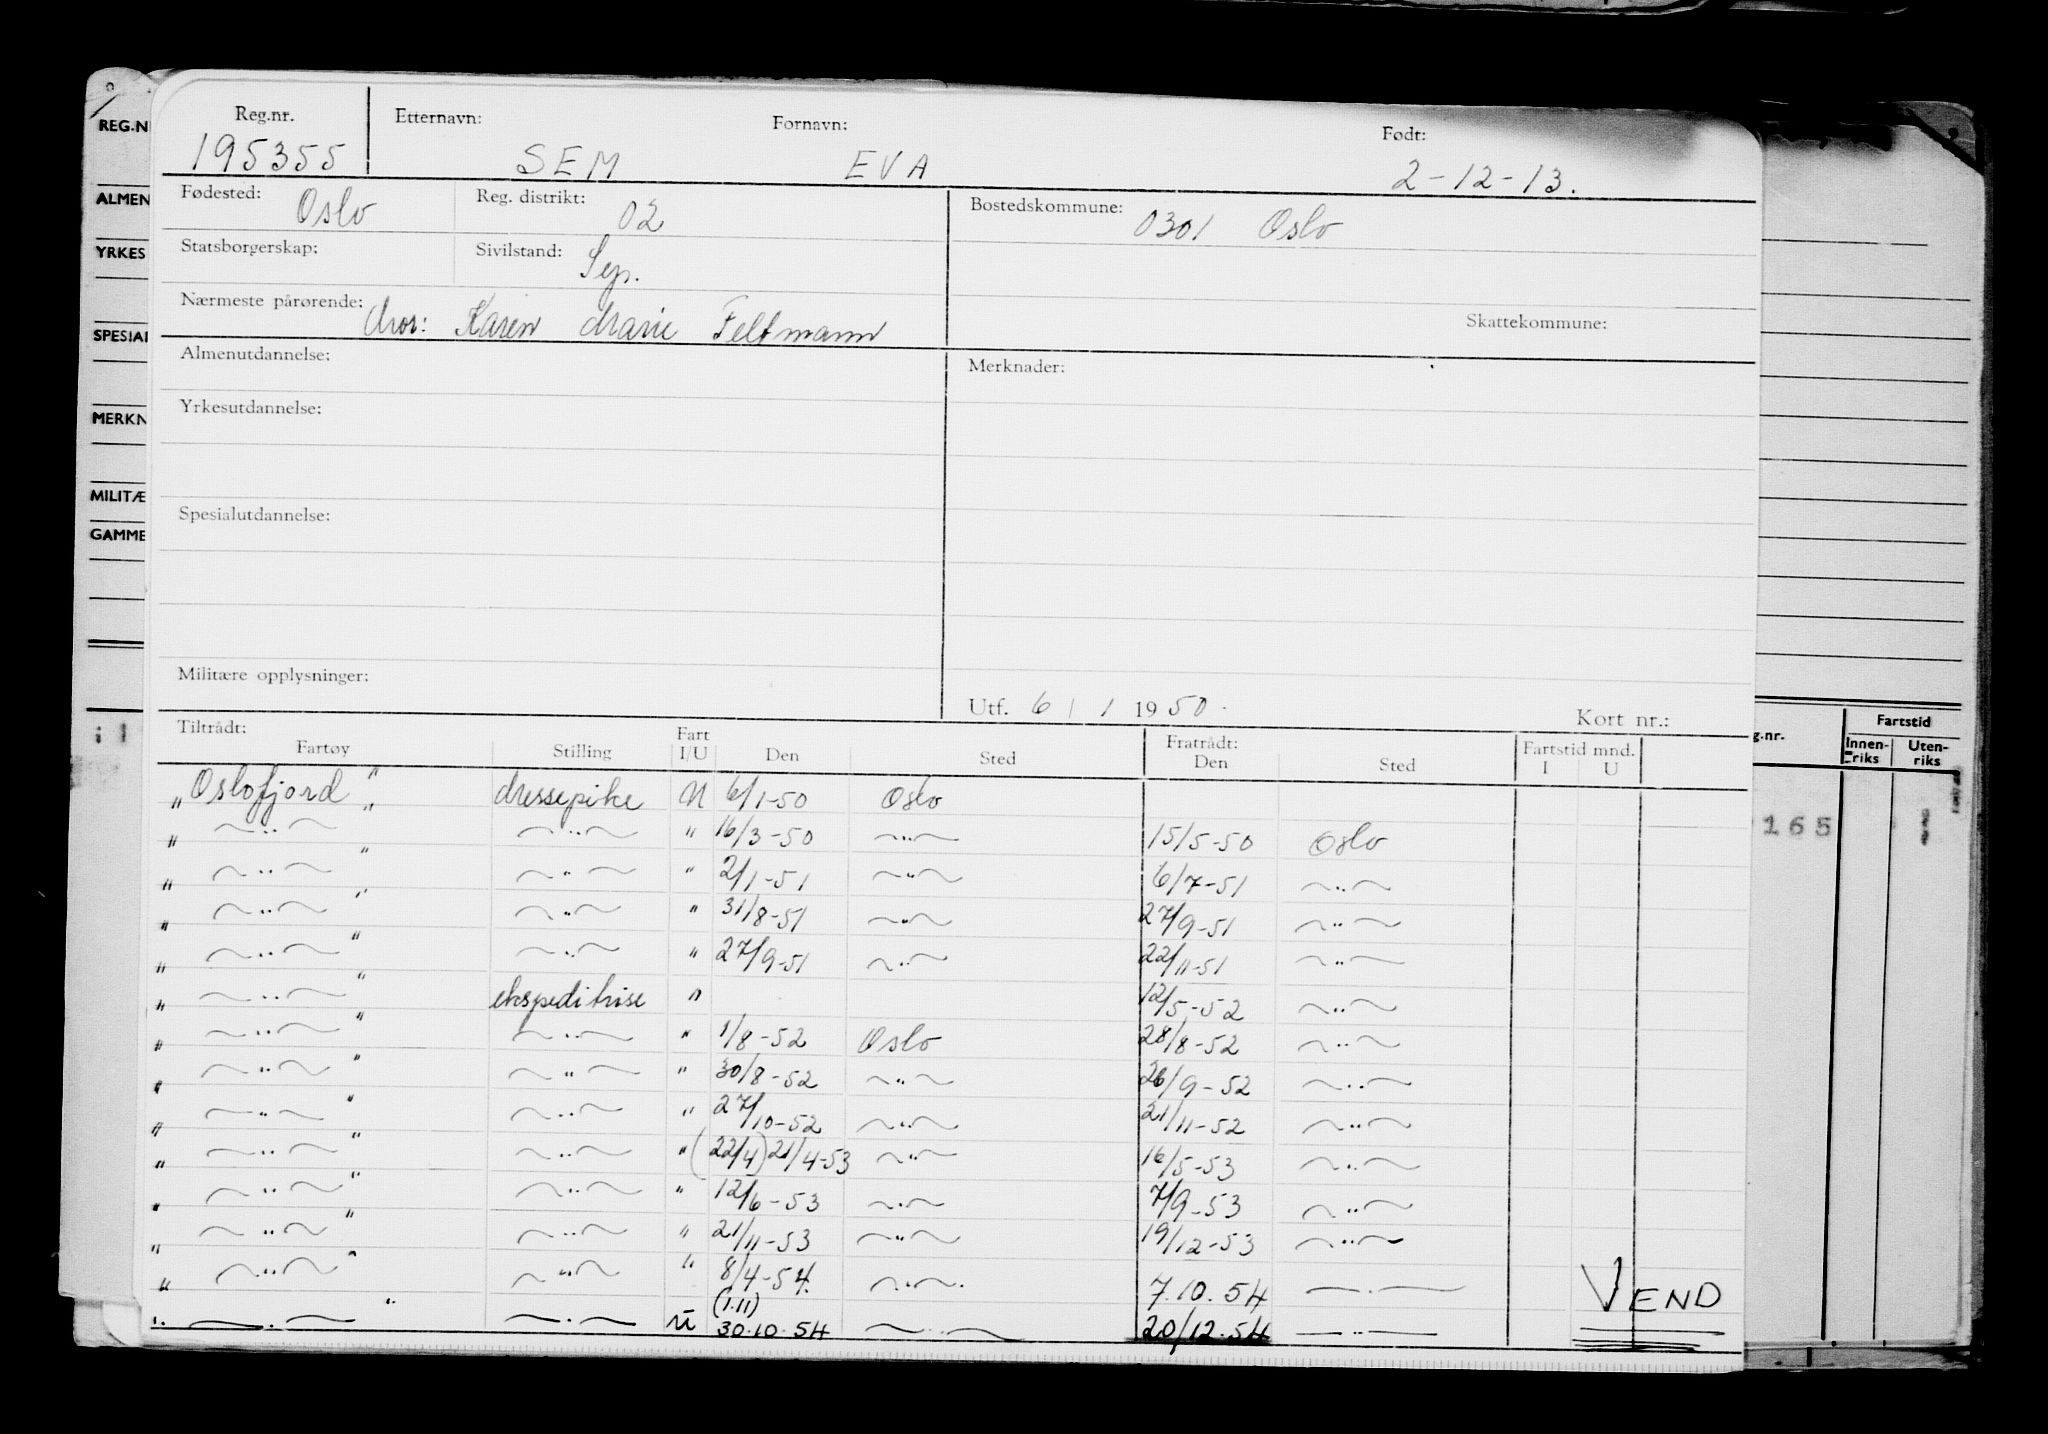 Reg.nr. Etternavn: Fornavn: Født:
195355 SEM EVA 2-12-13.
Fødested: Oslo Reg. distrikt: 02 Bostedskommune: 0301 Oslo
Statsborgerskap: Sivilstand: Sep.
Nærmeste pårørende: Mor: Karen Marie Feltmann Skattekommune:
Almenutdannelse: Merknader:
Yrkesutdannelse:
Spesialutdannelse:
Militære opplysninger:
Utf. 6 / 1 1950. Kort nr.:
Tiltrådt: Fart Fratrådt: Fartstid mnd.
Fartøy Stilling I/U Den Sted Den Sted I U
"Oslofjord" messepike U 6/1-50 Oslo
" ~..~ " ~..~ " 16/3-50 ~..~ 15/5-50 Oslo
" ~..~ " ~..~ " 2/1-51 ~..~ 6/7-51 ~..~
" ~..~ " ~..~ " 31/8-51 ~..~ 27/9-51 ~..~
" ~..~ " ~..~ " 27/9-51 ~..~ 22/11-51 ~..~
" ~..~ " ekspeditrise " 12/5-52 ~..~
" ~..~ " ~..~ " 1/8-52 Oslo 28/8-52 ~..~
" ~..~ " ~..~ " 30/8-52 ~..~ 26/9-52 ~..~
" ~..~ " ~..~ " 27/10-52 ~..~ 21/11-52 ~..~
" ~..~ " ~..~ " (22/4) 21/4-53 ~..~ 16/5-53 ~..~
" ~..~ " ~..~ " 12/6-53 ~..~ 7/9-53 ~..~
" ~..~ " ~..~ " 21/11-53 ~..~ 19/12-53 ~..~
" ~..~ " ~..~ " 8/4-54. ~..~. 7.10.54 —..— VEND
" ~..~ " ~..~ U (1.11) 30.10.54 ~..~ 20/12.54 —..—
REG.N
ALMEN
YRKES
SPESIAL
MERKN
MILITÆ
GAMME
g.nr. Fartstid
Innen-riks Uten-riks
165